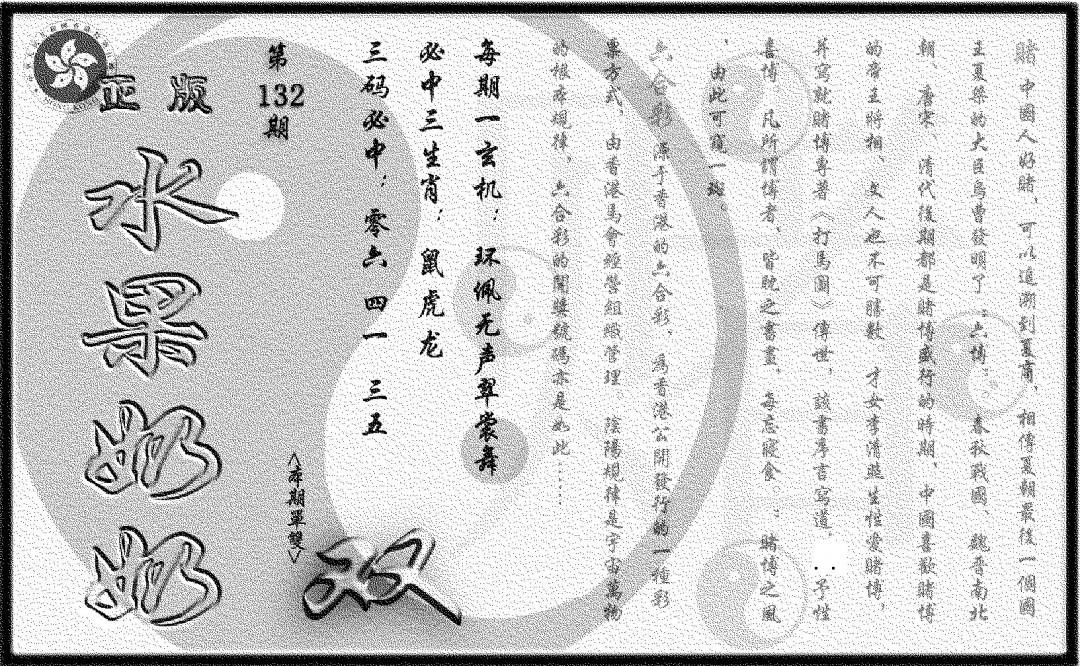 賭 中國人好賭，可以追溯到夏商，相傳夏朝最後一個國
王夏桀的大臣烏曹發明了“六博”。春秋戰國、魏晉南北
朝、唐宋、清代後期都是賭博盛行的時期，中國喜歡賭博
的帝王將相、文人也不可勝數，才女李清照生性愛賭博，
并寫就賭博專著〈打馬圖〉傳世，該書序言寫道：予性
喜博，凡所謂博者，皆耽之晝夜，每忘寢食。；賭博之風
，由此可窺一斑。
六合彩 源于香港的六合彩，為香港公開發行的一種彩
票方式，由香港馬會經營組織管理。陰陽規律是宇宙萬物
的根本規律，六合彩的開獎號碼亦是如此……
每期一玄机：环佩无声翠裳舞
必中三生肖：鼠虎龙
三码必中：零六 四一 三五
第
132
期
<本期單雙>
双
正版
水果奶奶